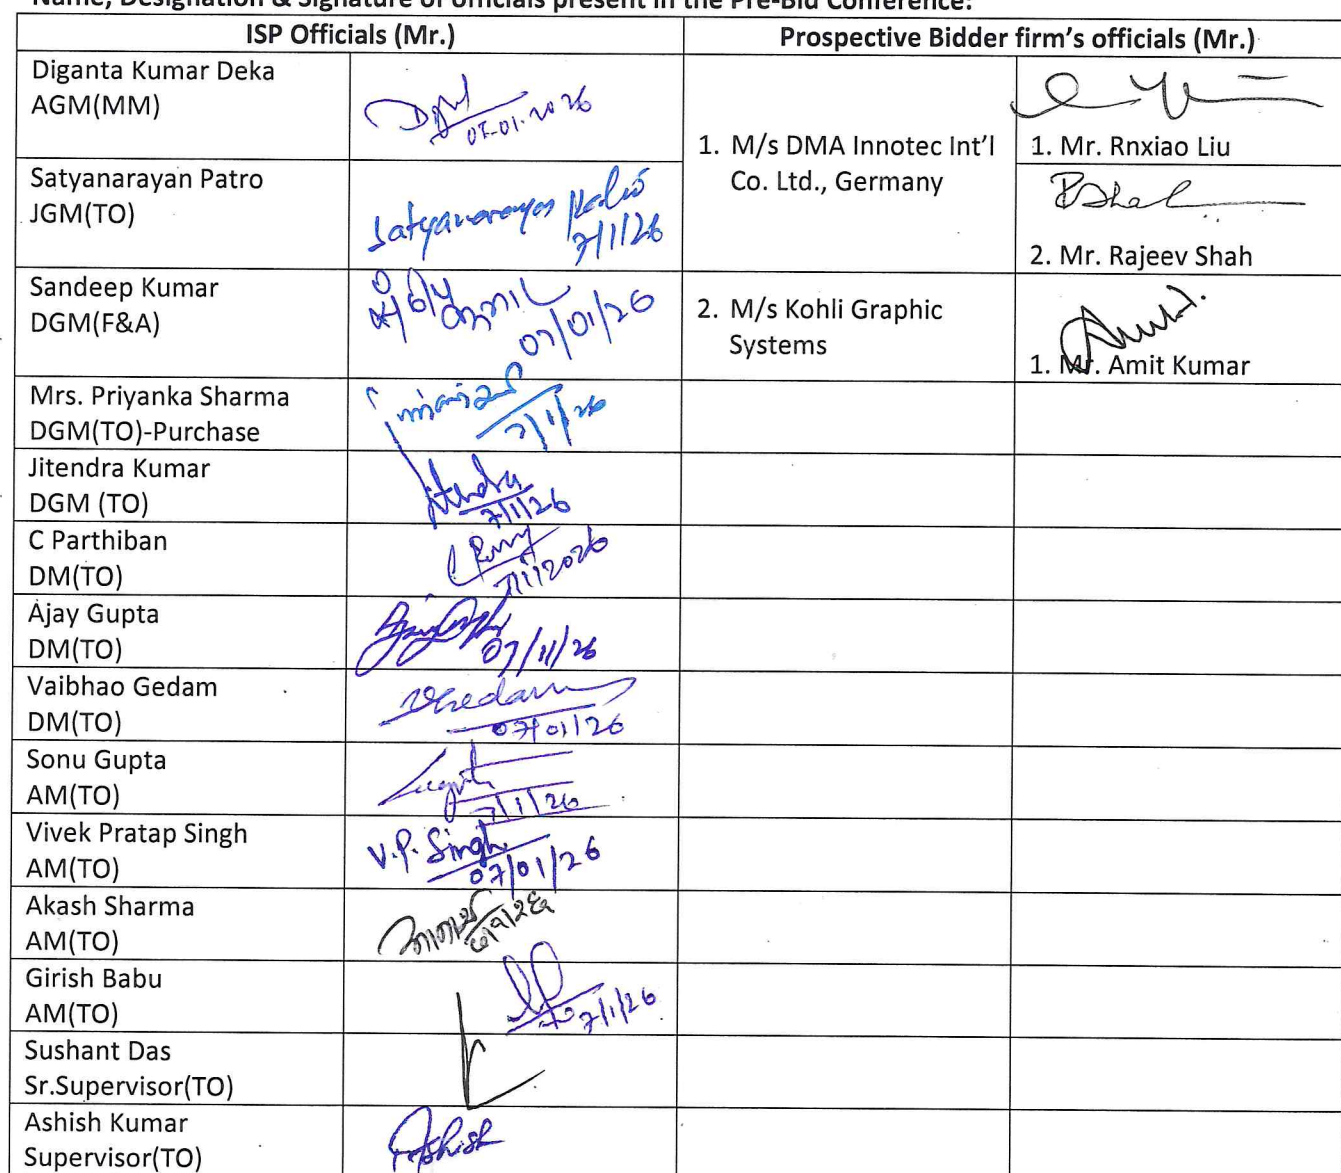 Name, Designation & Signature of officials present in the Pre-Bid Conference:
ISP Officials (Mr.)
Prospective Bidder firm's officials (Mr.)
Diganta Kumar Deka
AGM(MM)
07-01-2026
1. M/s DMA Innotec Int'l
Co. Ltd., Germany
1. Mr. Rnxiao Liu
Satyanarayan Patro
JGM(TO)
Satyanarayan
7/1/26
2. Mr. Rajeev Shah
Sandeep Kumar
DGM(F&A)
07/01/26
2. M/s Kohli Graphic
Systems
1. Mr. Amit Kumar
Mrs. Priyanka Sharma
DGM(TO)-Purchase
7/1/26
Jitendra Kumar
DGM (TO)
Jitendra
7/1/26
C Parthiban
DM(TO)
7/1/2026
Ajay Gupta
DM(TO)
07/1/26
Vaibhao Gedam
DM(TO)
VGedam
07/01/26
Sonu Gupta
AM(TO)
7/1/26
Vivek Pratap Singh
AM(TO)
V.P. Singh
07/01/26
Akash Sharma
AM(TO)
Girish Babu
AM(TO)
7/1/26
Sushant Das
Sr.Supervisor(TO)
Ashish Kumar
Supervisor(TO)
Ashish